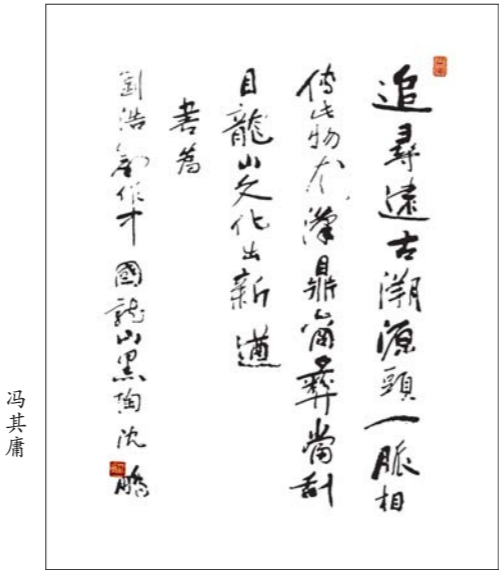 追尋遠古溯源頭一脈相
傳此物尤漢鼎商彝當刮
目龍山文化出新遒
書為
劉浩作中國龍山黑陶沈鵬
冯其庸